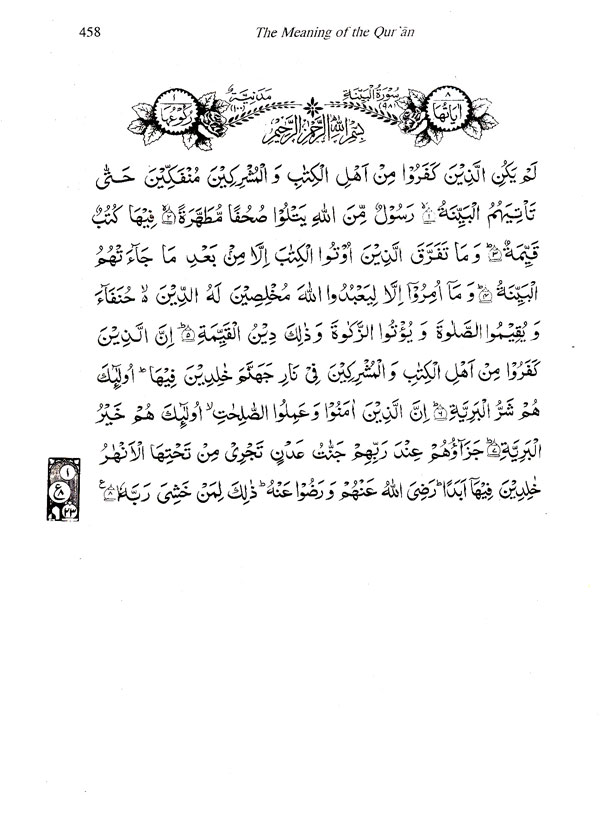 458 The Meaning of the Qur'ān
٨ اٰیَاتُهَا سُوْرَةُ الْبَیِّنَةِ (٩٨) مَدَنِیَّةٌ (١٠٠) ١ رُکُوْعُهَا
بِسْمِ اللّٰهِ الرَّحْمٰنِ الرَّحِیْمِ
لَمْ یَکُنِ الَّذِیْنَ کَفَرُوْا مِنْ اَهْلِ الْکِتٰبِ وَ الْمُشْرِکِیْنَ مُنْفَکِّیْنَ حَتّٰی
تَاْتِیَهُمُ الْبَیِّنَةُ ۙ﴿١﴾ رَسُوْلٌ مِّنَ اللّٰهِ یَتْلُوْا صُحُفًا مُّطَهَّرَةً ۙ﴿٢﴾ فِیْهَا کُتُبٌ
قَیِّمَةٌ ؕ﴿٣﴾ وَ مَا تَفَرَّقَ الَّذِیْنَ اُوْتُوا الْکِتٰبَ اِلَّا مِنْۢ بَعْدِ مَا جَآءَتْهُمُ
الْبَیِّنَةُ ؕ﴿٤﴾ وَ مَاۤ اُمِرُوْۤا اِلَّا لِیَعْبُدُوا اللّٰهَ مُخْلِصِیْنَ لَهُ الدِّیْنَ ۙ۬ حُنَفَآءَ
وَ یُقِیْمُوا الصَّلٰوةَ وَ یُؤْتُوا الزَّکٰوةَ وَ ذٰلِكَ دِیْنُ الْقَیِّمَةِ ؕ﴿٥﴾ اِنَّ الَّذِیْنَ
کَفَرُوْا مِنْ اَهْلِ الْکِتٰبِ وَ الْمُشْرِکِیْنَ فِیْ نَارِ جَهَنَّمَ خٰلِدِیْنَ فِیْهَا ؕ اُولٰٓئِكَ
هُمْ شَرُّ الْبَرِیَّةِ ؕ﴿٦﴾ اِنَّ الَّذِیْنَ اٰمَنُوْا وَ عَمِلُوا الصّٰلِحٰتِ ۙ اُولٰٓئِكَ هُمْ خَیْرُ
الْبَرِیَّةِ ؕ﴿٧﴾ جَزَآؤُهُمْ عِنْدَ رَبِّهِمْ جَنّٰتُ عَدْنٍ تَجْرِیْ مِنْ تَحْتِهَا الْاَنْهٰرُ
خٰلِدِیْنَ فِیْهَاۤ اَبَدًا ؕ رَضِیَ اللّٰهُ عَنْهُمْ وَ رَضُوْا عَنْهُ ؕ ذٰلِكَ لِمَنْ خَشِیَ رَبَّهٗ ﴿٨﴾ ع
١
ع ٨
٢٣